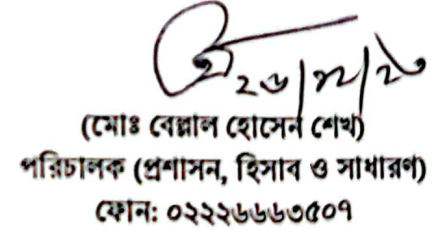 ২৬/১২/২৩
(মোঃ বেল্লাল হোসেন শেখ)
পরিচালক (প্রশাসন, হিসাব ও সাধারণ)
ফোন: ০২২২৬৬৬৩৫০৭